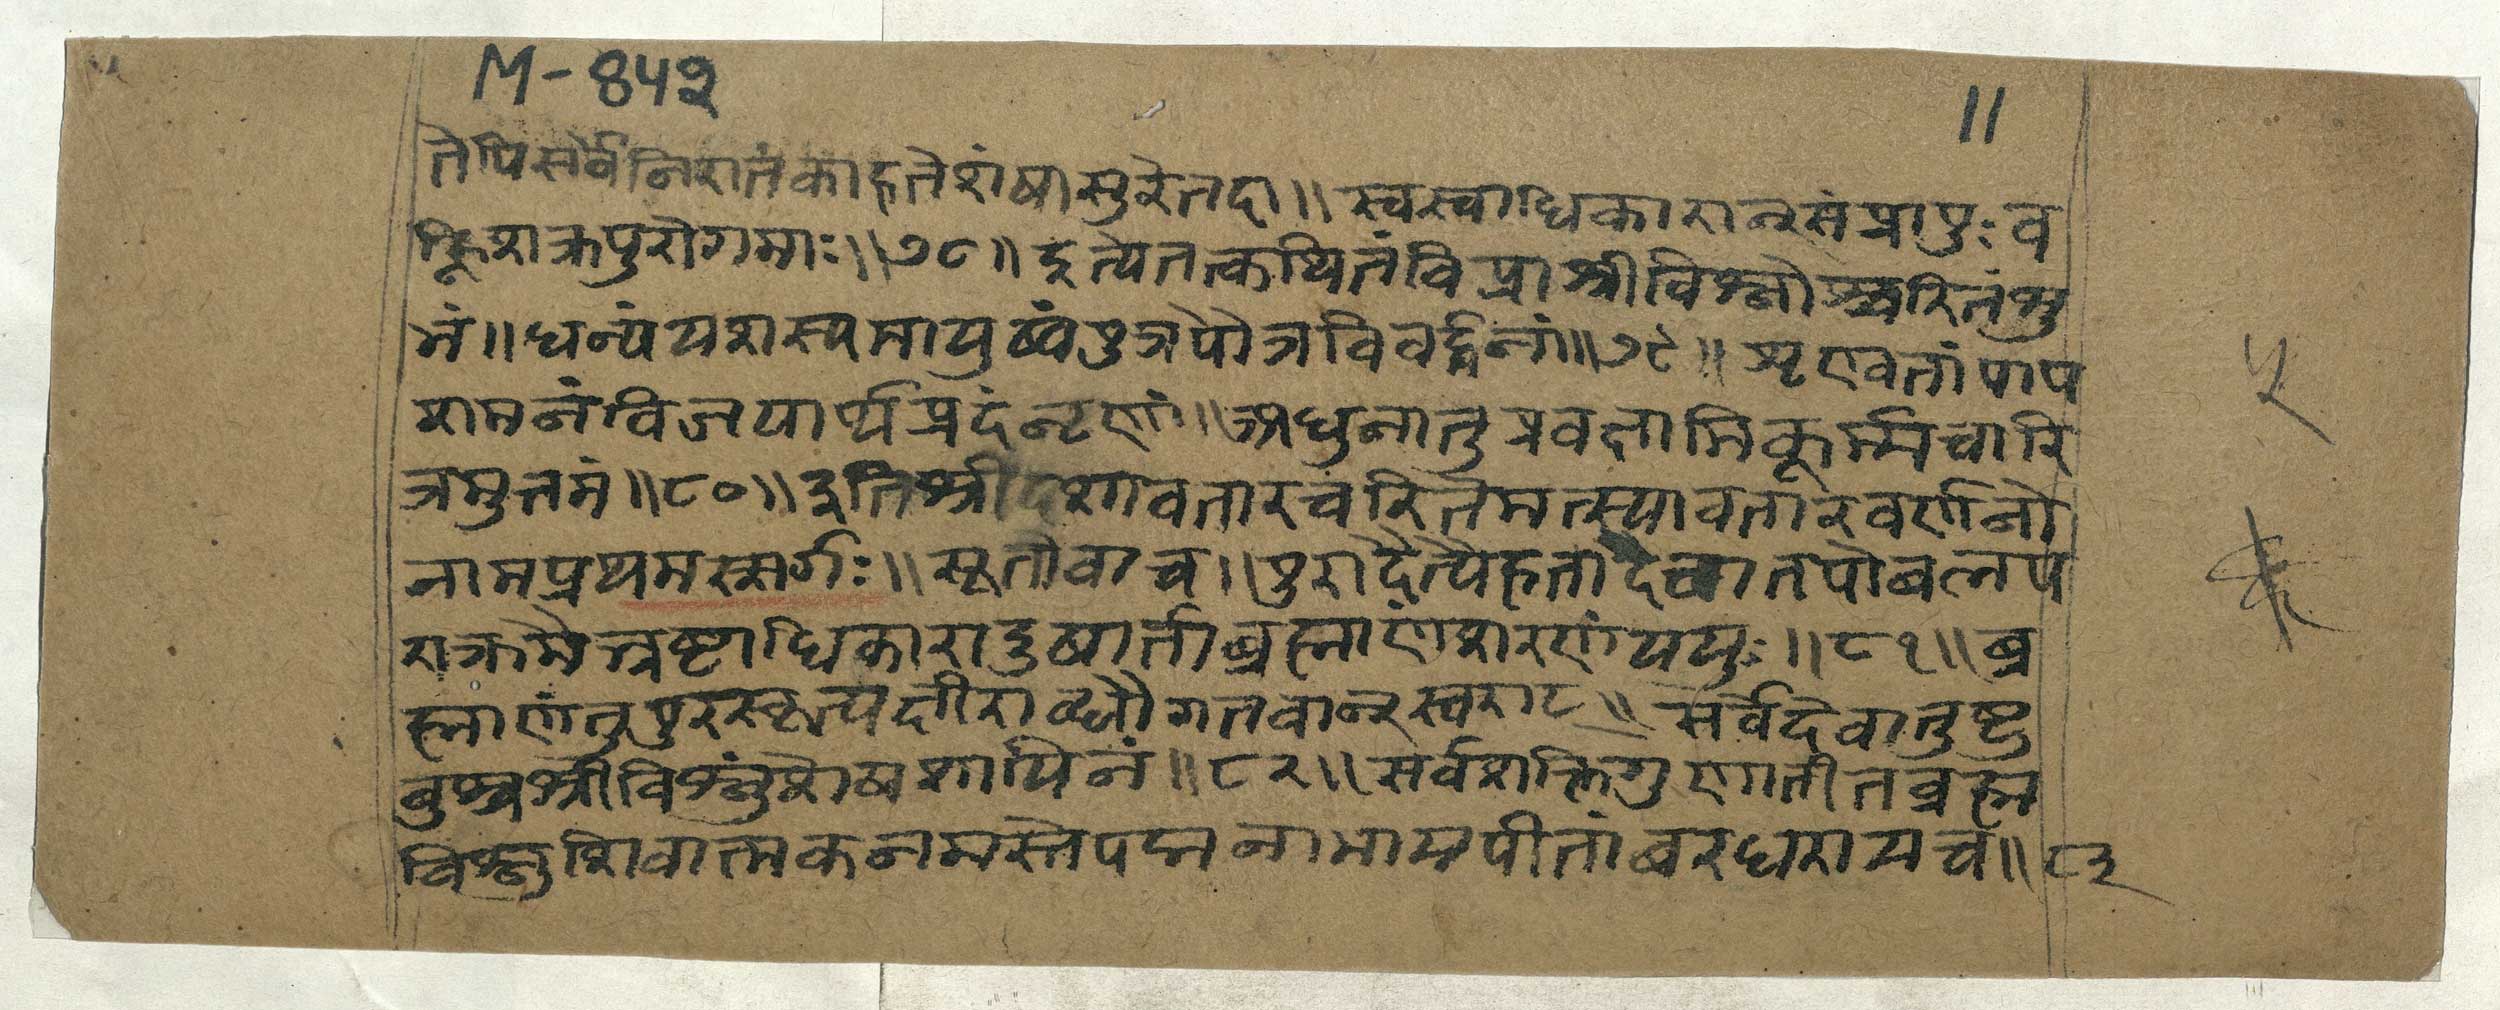 M-८४३
11
तेपिसर्वेनिरातंकाहतेशंषासुरेतदा॥स्वस्वाधिकारान्संप्रापुःव
ह्निशक्रपुरोगमाः॥७८॥इत्येतत्कथितंविप्राश्रीविश्नोश्चरितंशु
भं॥धन्यंयशस्यमायुष्यंपुत्रपौत्रविवर्द्धनां॥७९॥शृण्वतांपाप
शमनंविजयार्थप्रदंनृणां॥अधुनातुप्रवक्षामिकूर्म्मचारि
त्रमुत्तमं॥८०॥इतिश्रीदशावतारचरितेमत्स्यावतारवर्णनो
नामप्रथमस्सर्गः॥सूतोवाच॥पुरादैत्यैहतादेवातपोबलप
राक्रमैःन्रष्टाधिकारादुषार्ताब्रह्माणंशरणंययुः॥८१॥ब्र
ह्माणंतुपुरस्कृत्यक्षीराब्धौगतवान्स्वराट॥सर्वेदेवातुष्टु
वुश्चश्रीविश्नुंशेषशायिनं॥८२॥सर्वशक्तिगुणातीतब्रह्म
विश्नुशिवात्मकनमस्तेपद्मनाभायपीतांबरधरायच॥८३
५